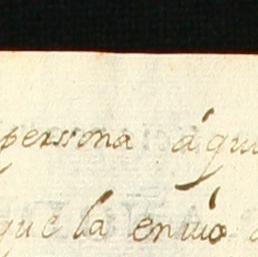 persona á qui
que la enuió